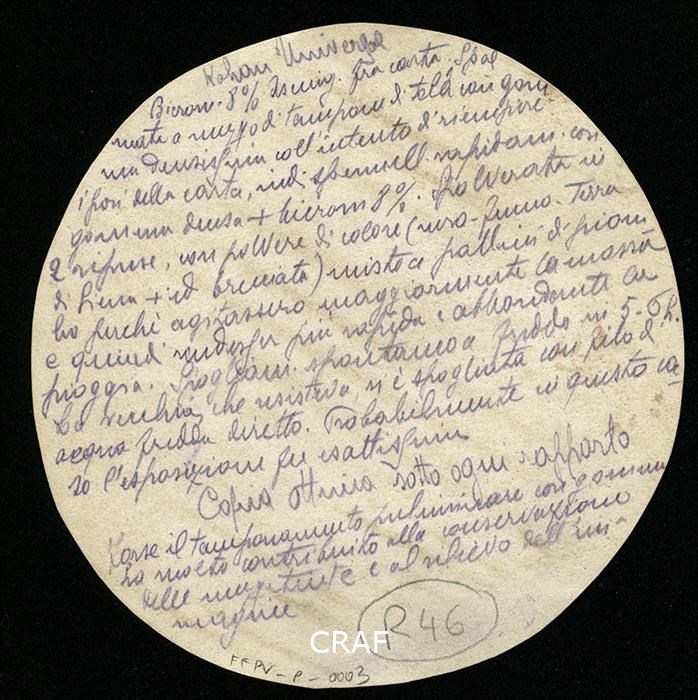 Universal
Bicrom. 8% Asciug. fra carta. Spal
mata a mezzo di tampone di tela con gom
ma densissima coll'intento di riempire
i pori della carta, indi spennell. rapidam. con
gomma densa + bicrom 8%. Spolverata in
2 riprese, con polvere di colore (nero-fumo-Terra
di Siena + id bruciata) mista a pallini di piom
bo perchè agitassero maggiormente la massa
e quindi rendesser più rapida e abbondante la
pioggia. Spogliam. spontaneo a freddo in 5-6 h.
La macchia, che resisteva, si è spogliata con filo d'
acqua fredda diretto. Probabilmente in questo ca-
so l'esposizione fu esattissima
Copia ottima sotto ogni rapporto
Forse il tamponamento preliminare con gomma
ha molto contribuito alla conservazione
delle mezzetinte e al rilievo dell'im-
magine
R46
CRAF
FFPV-P-0003